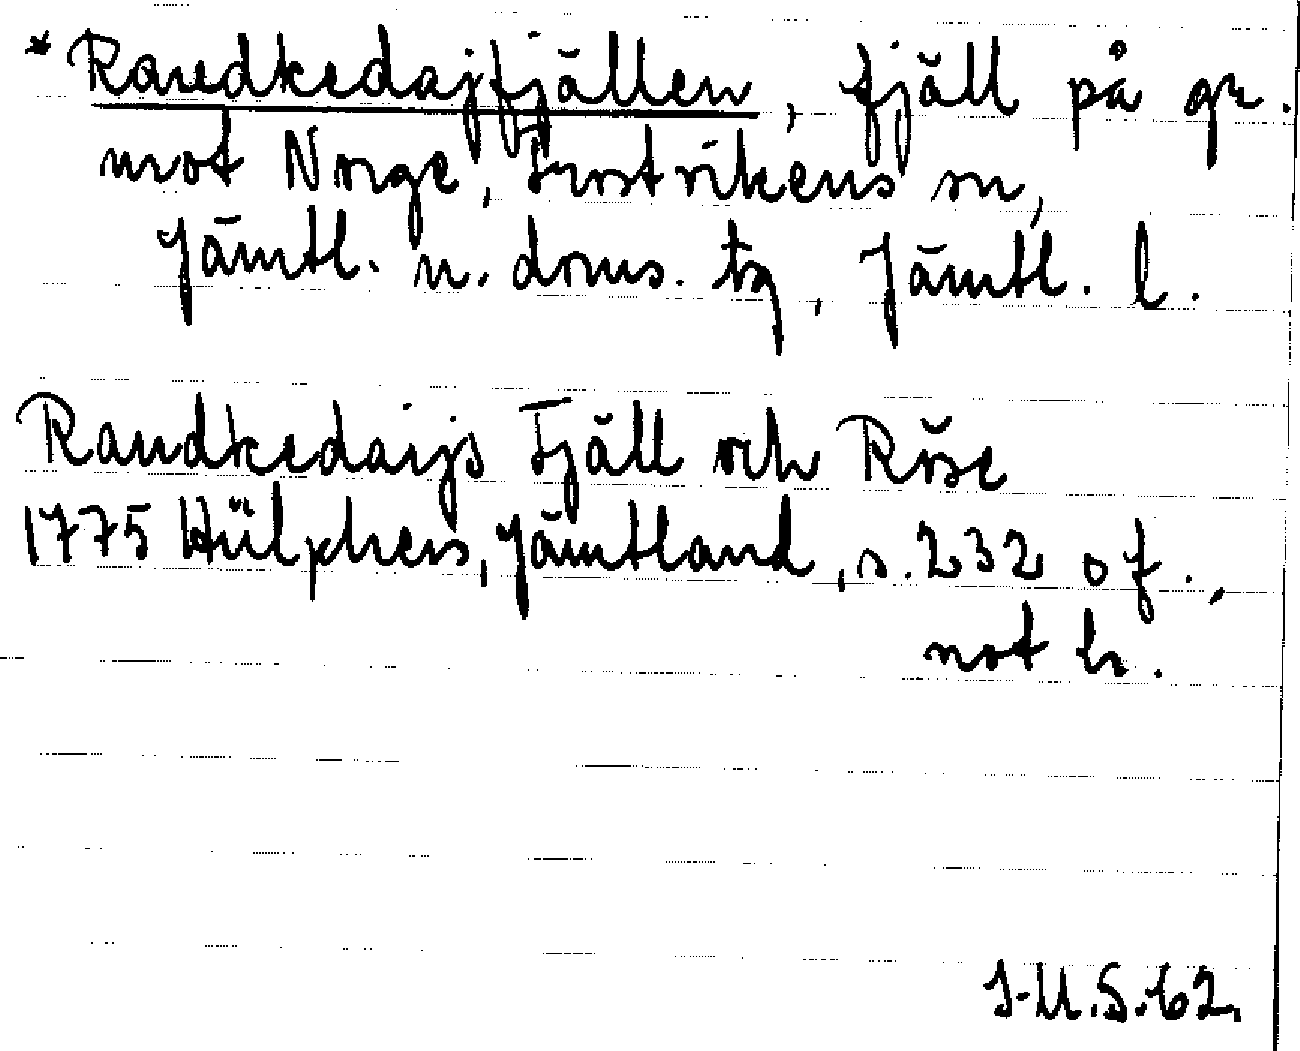 *Randkedajfjällen, fjäll på gr.
mot Norge, Frostvikens sn,
Jämtl. n. doms. tg, Jämtl. l.
Randkedaijs Fjäll och Röse
1775 Hülphers, Jämtland, s. 232 o f.,
not h.
I-M.S.62.